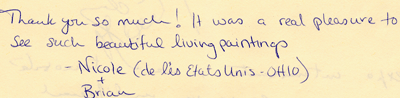 Thank you so much! It was a real pleasure to
see such beautiful living paintings
- Nicole (de les Etats Unis - OHIO)
+
Brian